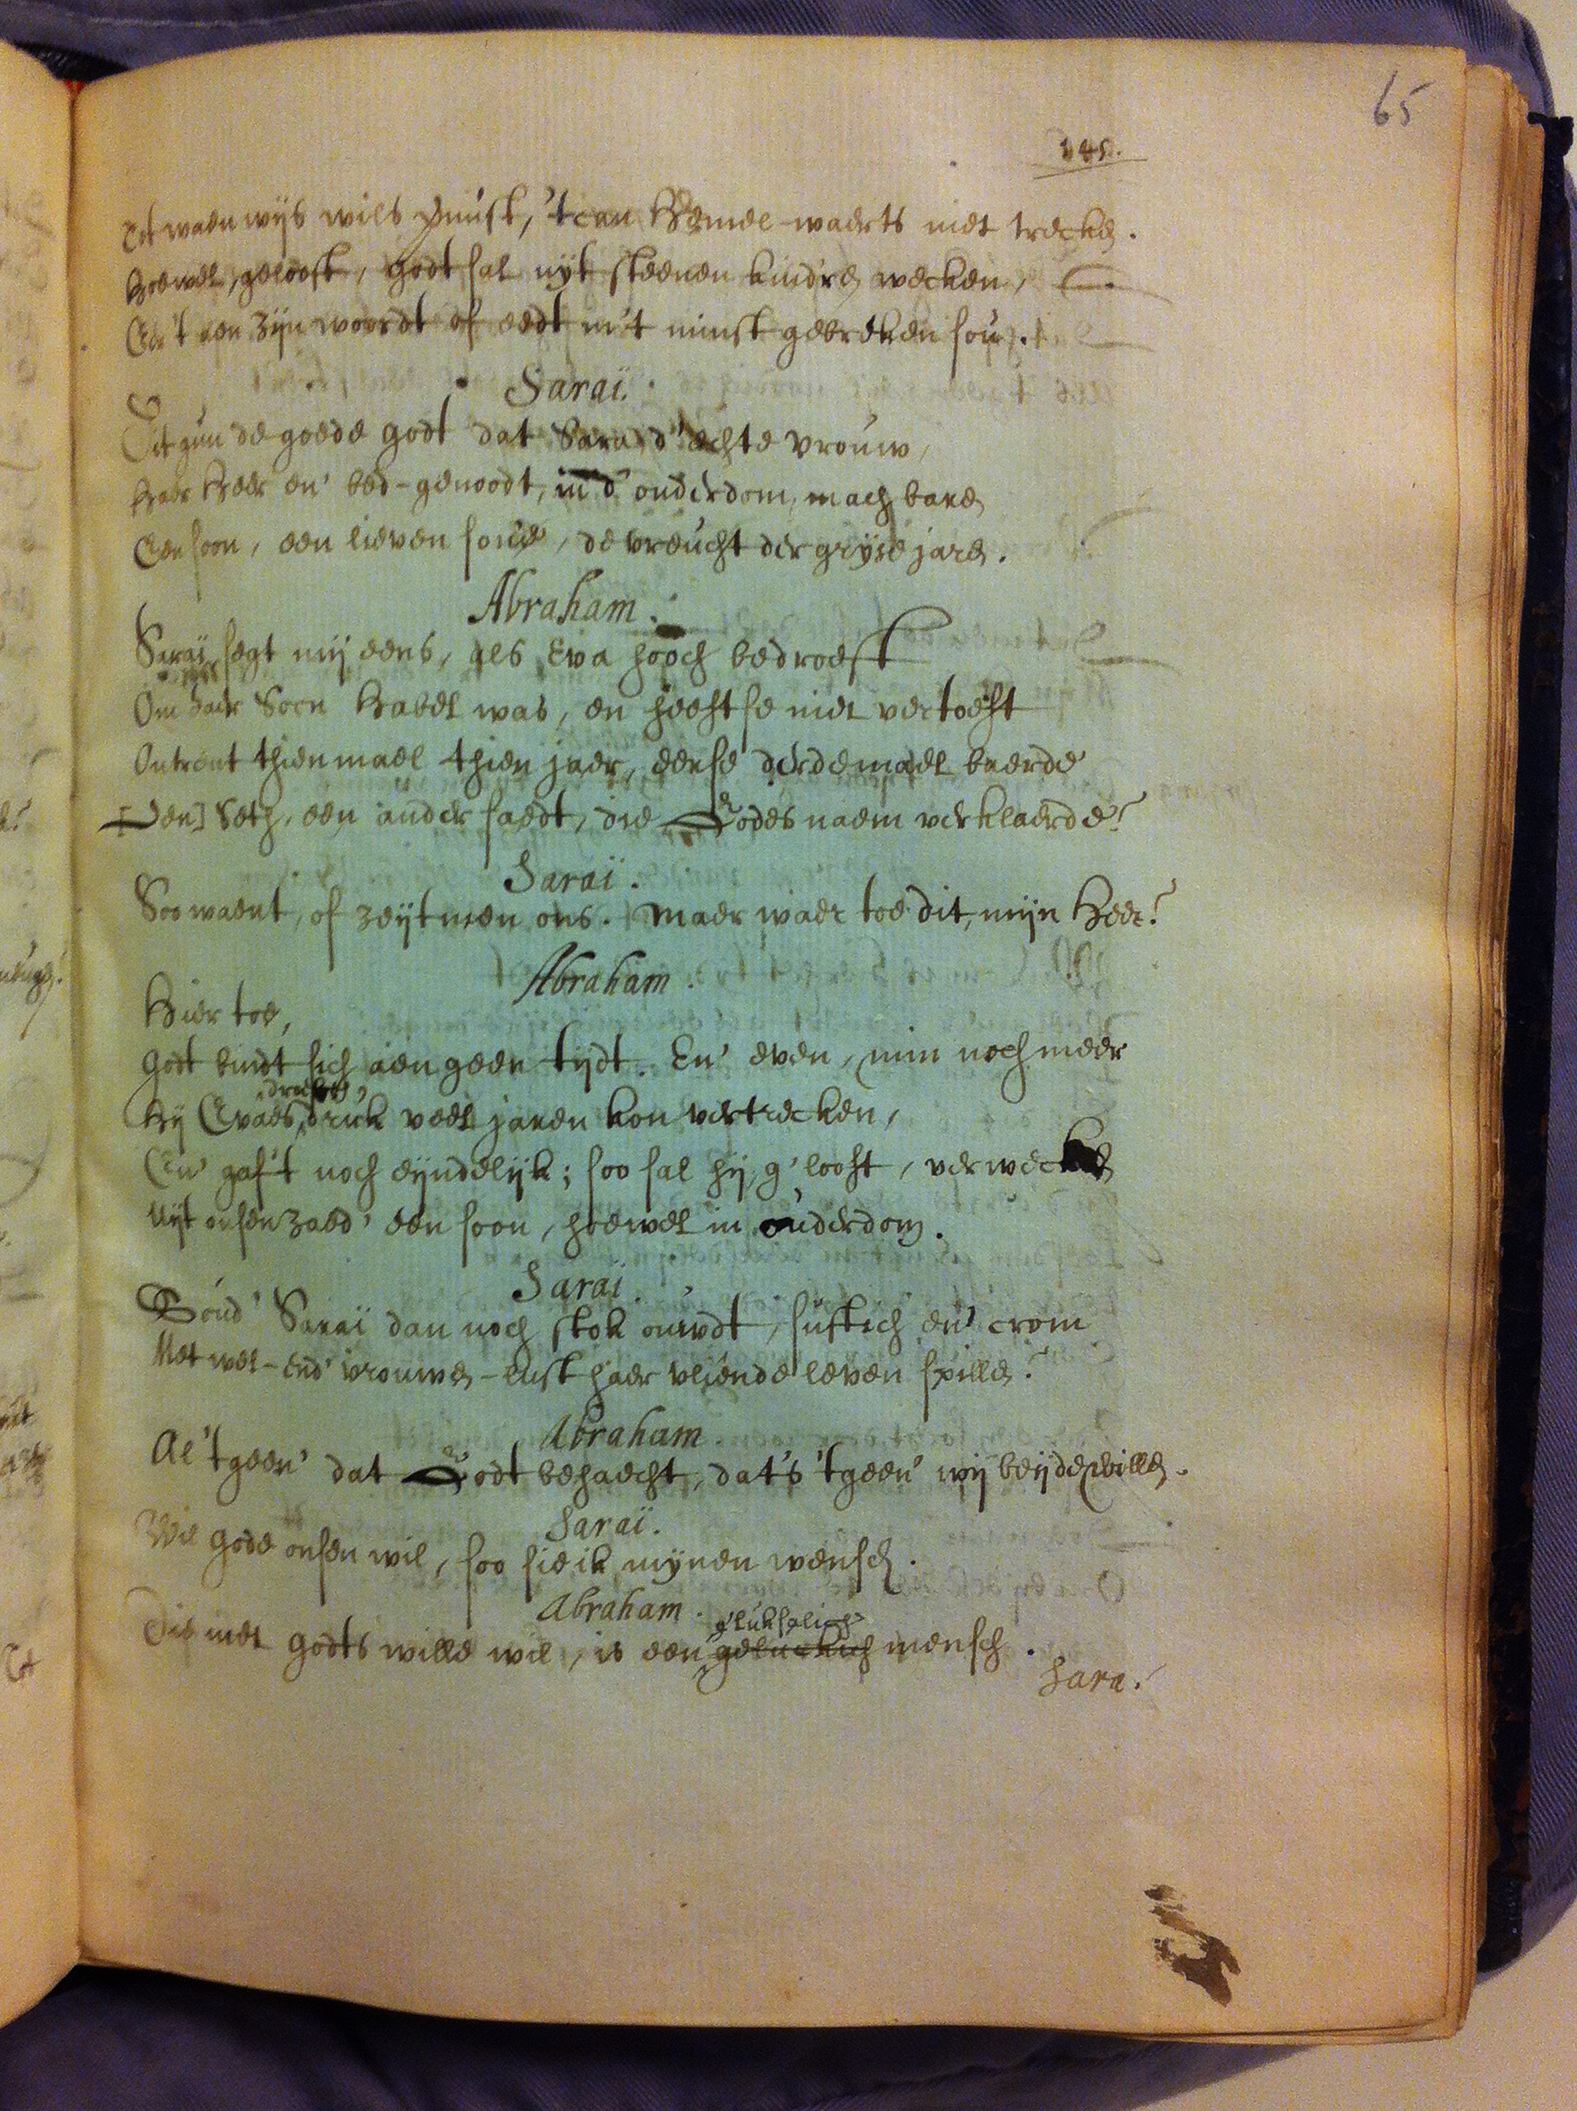 65
145.
Dit waen wijs wils gunst, 't can Hemel-waerts niet trecken.
Hoewel, gelooft, Godt sal uyt steenen kindren wecken,
Eer 't aen zijn woordt of eedt in't minst gebreken sou.
Saraï.
Dit gun de goede Godt dat Sara d'echte vrouw,
Haer Heer en' bed-genoodt, in d'ouderdom, mach baren
Een soon, een lieven soone, de vreucht der gryse jaren.
Abraham.
Saraï segt mij eens, als Eva hooch bedroeft
Om haer Soen Habel was, en heeftse niet vertoeft
Ontrent thienmael thien jaer, eerse derdemael baerde
[Den] Seth, een ander saedt, die Godes naem verklaerde?
Saraï.
Soo waent, of zeijt men ons. Maer waer toe dit, mijn Heer?
Abraham.
Hier toe,
Godt bindt sich aen geen tijdt. En' even, min noch meer
Hij Evaes druk veel jaren kon vertrecken,
En' gaf't noch eyndelijk; soo sal hij, g'looft, verwecken
Uijt onsen zaed' een soon, hoewel in ouderdom.
Sarai.
Soud' Saraï dan noch stok ouwdt, suftich en' crom
Met wel-end' vrouwen-lust haer vliende leven spillen?
Abraham
Al 'tgeen' dat Godt behaecht, dat's 'tgeen' wij beijde willen.
Saraï.
Wil Gode onsen wil, soo sie ik mijnen wensch.
Abraham.
g'lukselich
Die met Godts wille wil, is een geluckich mensch.
Sara.